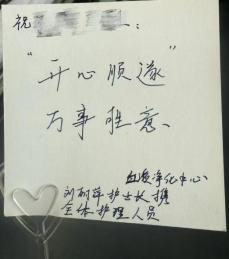 祝 :
“开心顺遂”
万事胜意、
血液净化中心
刘丽萍护士长携
全体护理人员